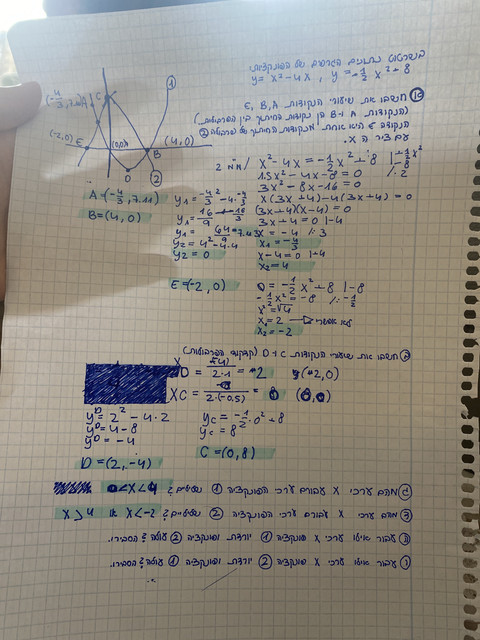 בשרטוט נתונים הגרפים של הפונקציות
y = x² - 4x , y = -½x² + 8
① ② (-4/3, 7.11) A C (-2,0) E (0,0) B (4,0) D
א) חשבו את שיעורי הנקודות E, B, A
(הנקודות A ו-B הן נקודות החיתוך בין הפרבולות.)
הנקודה E היא אחת מנקודות החיתוך של פרבולה ②
עם ציר ה X.
x² - 4x = -½x² + 8 | +½x² | -8
1.5x² - 4x - 8 = 0 /·2
3x² - 8x - 16 = 0
x(3x+4) - 4(3x+4) = 0
(3x+4)(x-4) = 0
3x+4 = 0 |-4
x = -4 /:3
x₁ = -4/3
x-4=0 |+4
x₂ = 4
A = (-4/3, 7.11)
B = (4, 0)
y₁ = -4/3² - 4·-4/3
y₁ = 16/9 + 16/3
y₁ = 64/9
y₂ = 4² - 4·4
y₂ = 0
E = (-2, 0)
0 = -½x² + 8 |-8
-½x² = -8 /:-½
x² = √4
x₁ = 2 → לא אפשרי
x₂ = -2
ב) חשבו את שיעורי הנקודות C ו D (קדקודי הפרבולות)
XD = -(-4)/2·1 = 2 (2,0)
XC = -0/2·(-0.5) = 0 (0,0)
yD = 2² - 4·2
yD = 4 - 8
yD = -4
yC = -½·0² + 8
yC = 8
D = (2, -4)
C = (0, 8)
ג) מהם ערכי X עבורם ערכי הפונקציה ① שליליים? 0<X<4
ד) מהם ערכי X עבורם ערכי הפונקציה ② שליליים? X<-2 או X>4
ה) עבור אילו ערכי X פונקציה ① יורדת ופונקציה ② עולה? הסבירו.
ו) עבור אילו ערכי X פונקציה ② יורדת ופונקציה ① עולה? הסבירו.